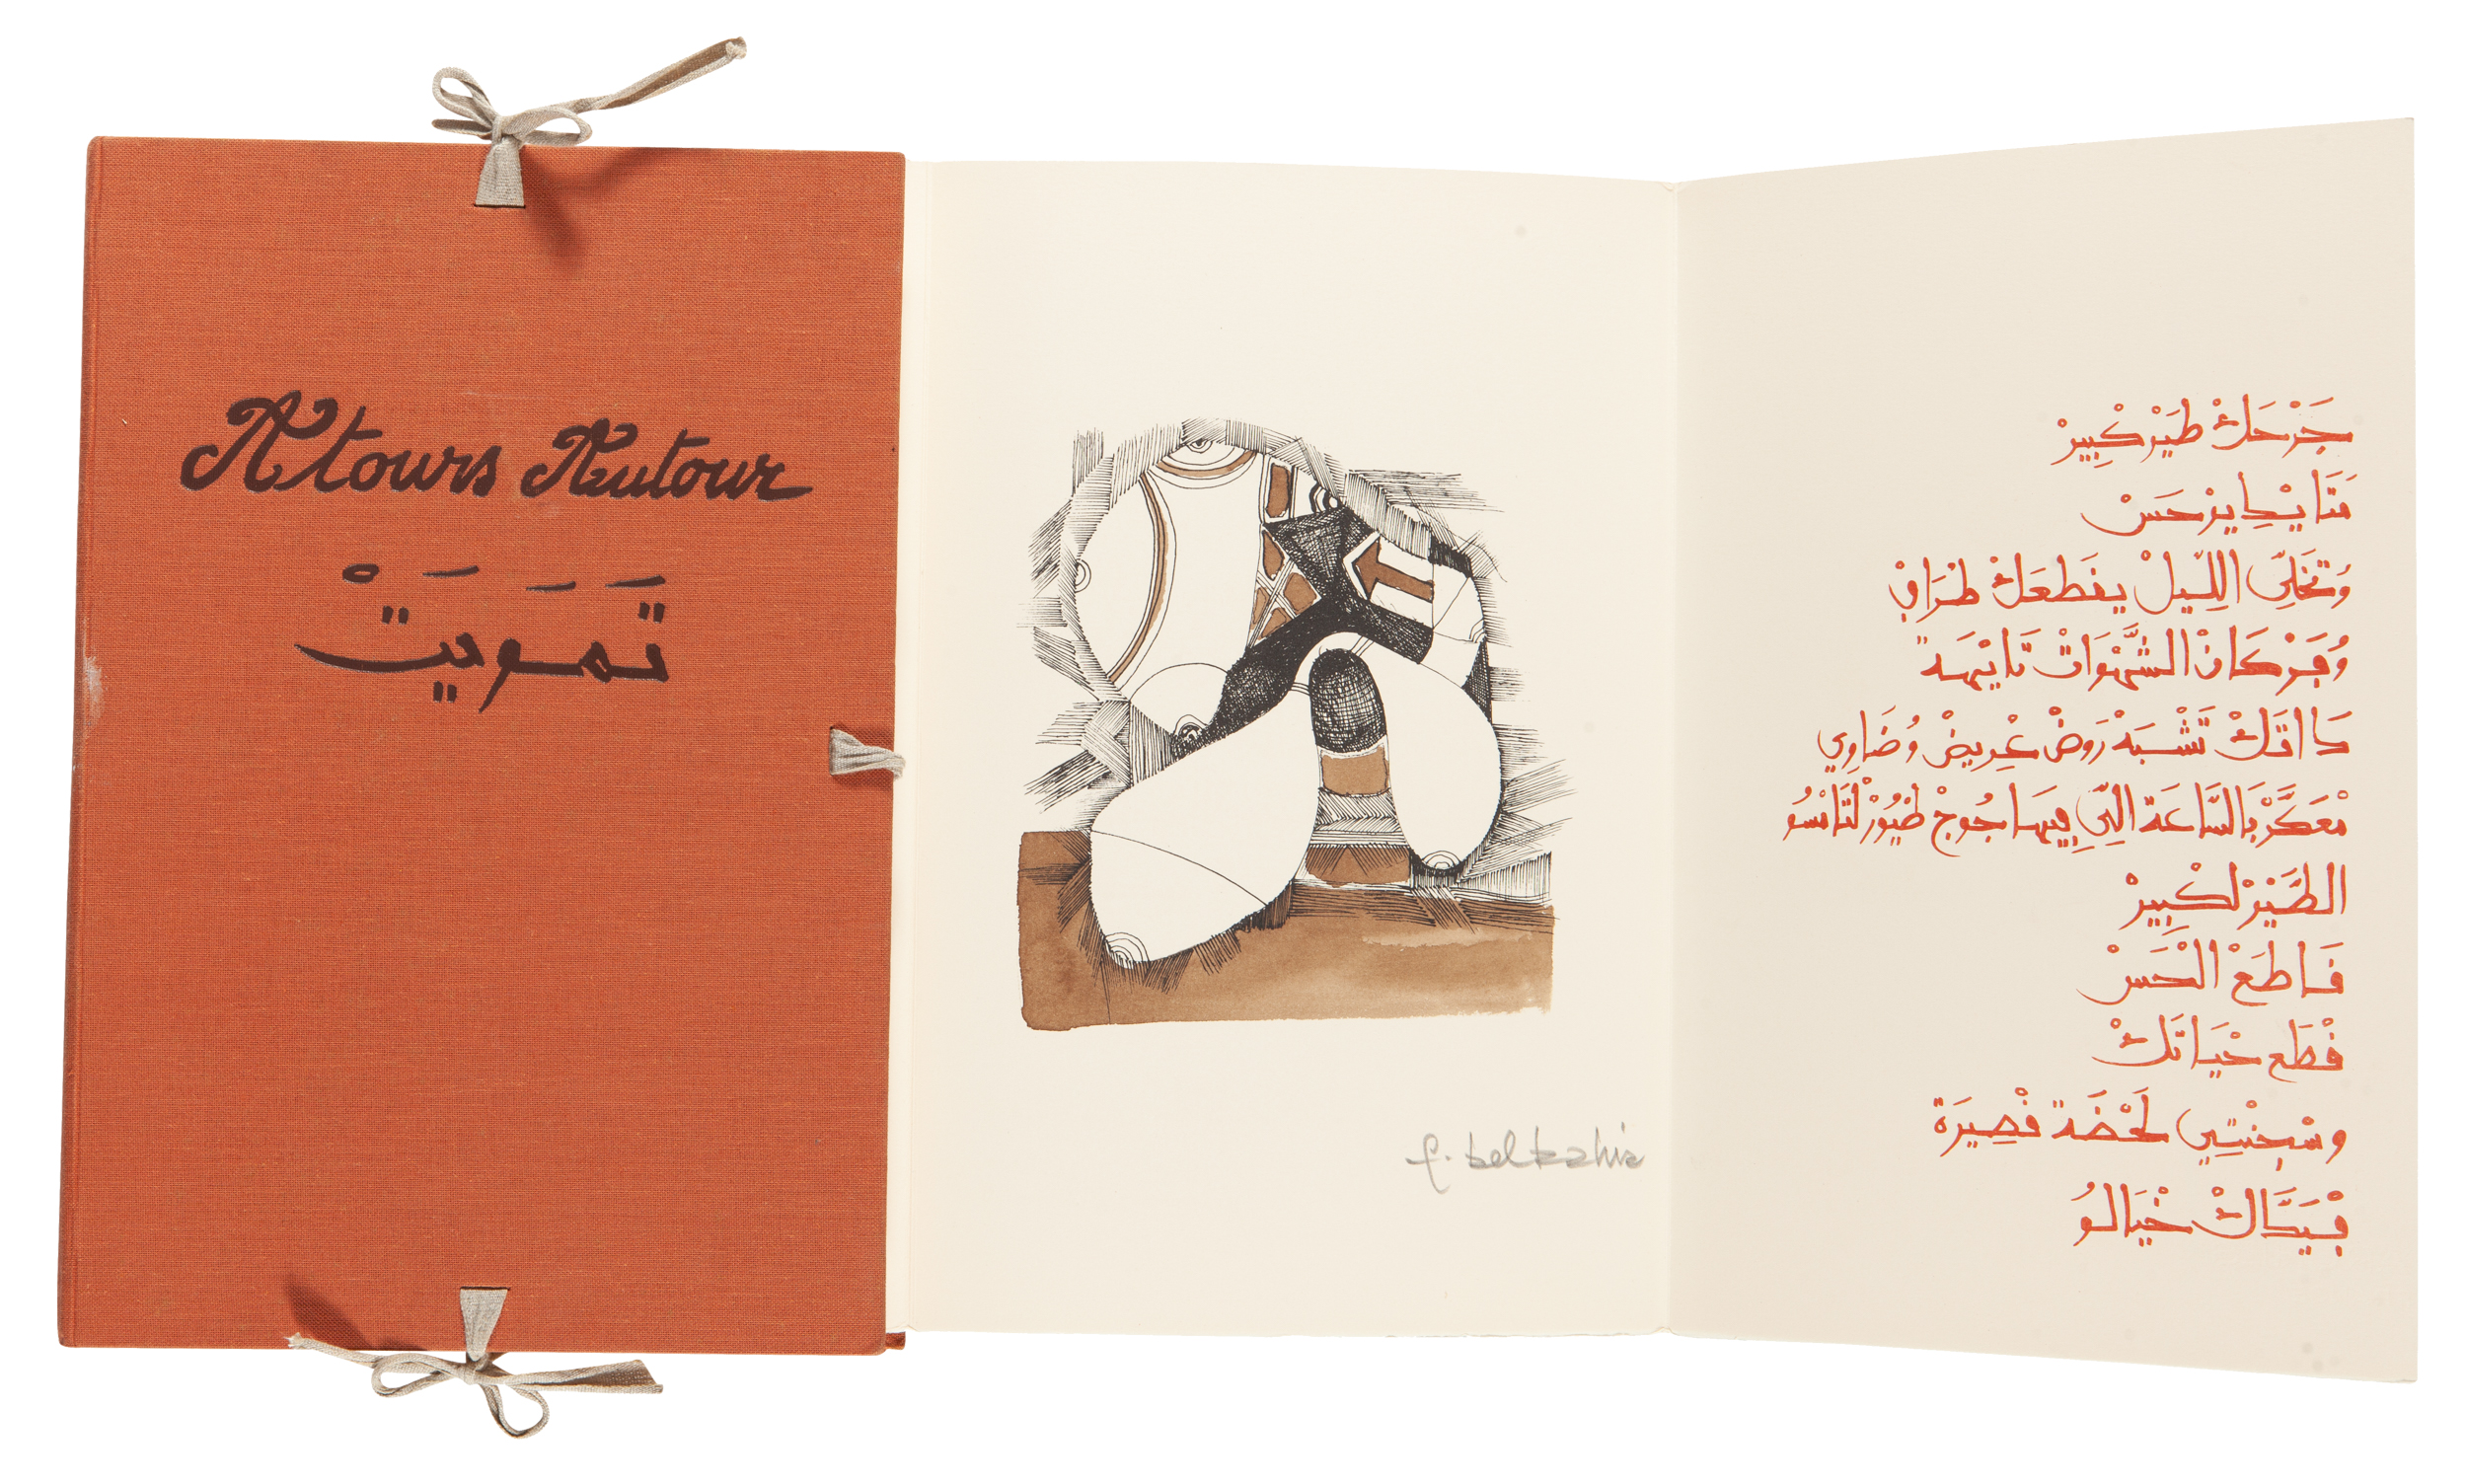 Atours Autour
تَمَوَيَتْ
f. belkahia
جَرْحَكْ طَيْرْ كْبِيرْ
تَايْدِيرْ حَسْ
وُتْخَلِّي اللِّيلْ يقَطعَكْ طْرَافْ
كَانْ الشَّهْوَاتْ تَايْهَة
تَشْبَهْ رَوضْ عْرِيضْ وُضَاوِي
بَالسَّاعَة اللِّي فِيهَا جُوجْ طْيُورْ
الطَّيْرْ لكْبِيرْ
قَاطَعْ الْحَسْ
قْطَع حْيَاتَكْ
وسْجنْتِي لَحْضَة قْصِيرَة
فْيَدَّاكْ خْيَالُو